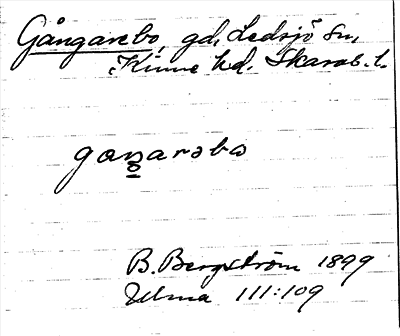 Gångarebo, gd, Ledsjö sn,
Kinne hd. Skarab. l.
gaŋarəbo
B. Bergström 1899
Ulma 111:109